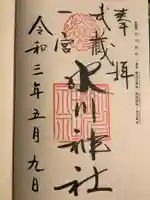 奉拝
武蔵
一宮
氷川神社
令和三年五月九日